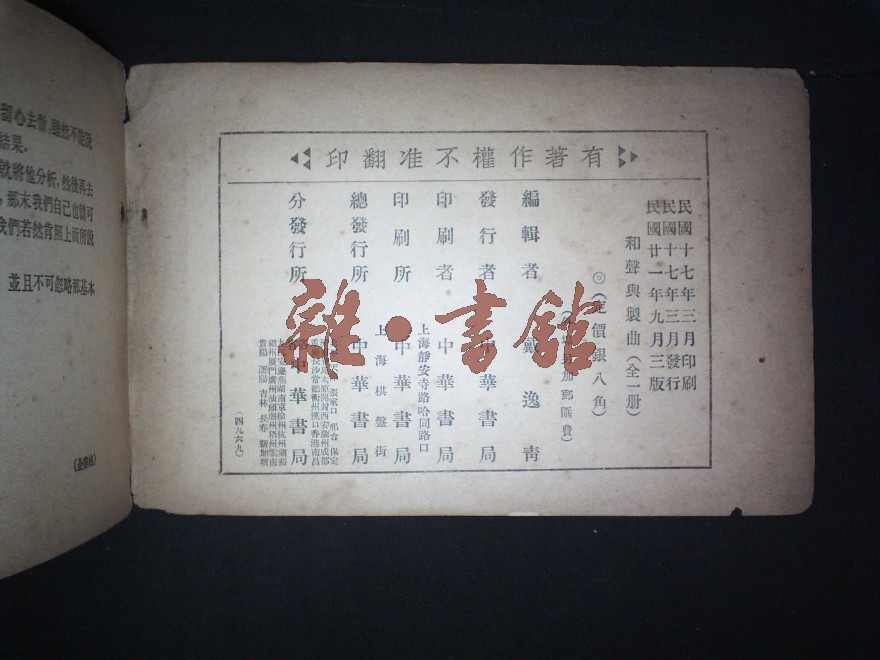 有著作權不准翻印
民國十七年三月印刷
民國十七年三月發行
民國廿一年九月三版
和聲與製曲(全一册)
◎(定價銀八角)
加郵匯費)
編輯者 戴逸靑
發行者 中華書局
印刷者 中華書局
上海靜安寺路哈同路口
印刷所 中華書局
上海棋盤街
總發行所 中華書局
分發行所 中華書局
(四九六九)
雜·書館
留心去做,雖然不能說
結果。
就將他分析,然後再去
,那末我們自己也就可
我們若然肯照上面所說
並且不可忽略那基本